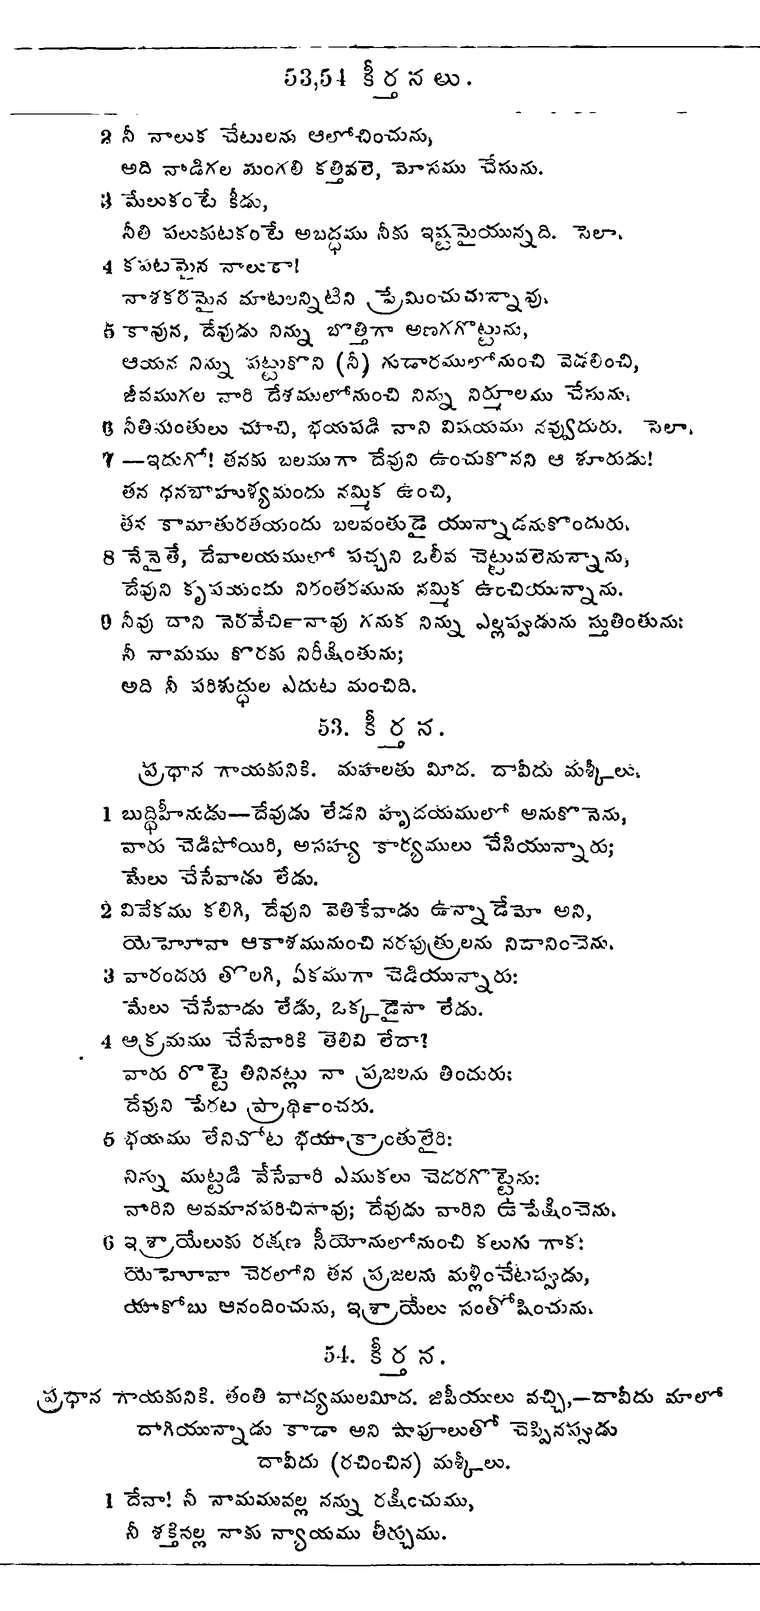 53,54 కీర్తనలు.
2 నీ నాలుక చేటులను ఆలోచించును,
అది వాడిగల మంగలి కత్తివలె, మోసము చేసును.
3 మేలుకంటే కీడు,
నీతి పలుకుటకంటే అబద్ధము నీకు ఇష్టమైయున్నది. సెలా.
4 కపటమైన నాలుకా!
నాశకరమైన మాటలన్నిటిని ప్రేమించుచున్నావు.
5 కావున, దేవుడు నిన్ను బొత్తిగా అణగగొట్టును,
ఆయన నిన్ను పట్టుకొని (నీ) గుడారములోనుంచి వెడలించి,
జీవముగల వారి దేశములోనుంచి నిన్ను నిర్మూలము చేసును.
6 నీతిమంతులు చూచి, భయపడి వాని విషయము నవ్వుదురు. సెలా.
7 —ఇదుగో! తనకు బలముగా దేవుని ఉంచుకొనని ఆ శూరుడు!
తన ధనబాహుళ్యమందు నమ్మిక ఉంచి,
తన కామాతురతయందు బలవంతుడై యున్నాడనుకొందురు.
8 నేనైతే, దేవాలయములో పచ్చని ఒలీవ చెట్టువలెనున్నాను,
దేవుని కృపయందు నిరంతరమును నమ్మిక ఉంచియున్నాను.
9 నీవు దాని నెరవేర్చినావు గనుక నిన్ను ఎల్లప్పుడును స్తుతింతును:
నీ నామము కొరకు నిరీక్షింతును;
అది నీ పరిశుద్ధుల ఎదుట మంచిది.
53. కీర్తన.
ప్రధాన గాయకునికి. మహలతు మీద. దావీదు మశ్కీలు.
1 బుద్ధిహీనుడు—దేవుడు లేడని హృదయములో అనుకొనెను,
వారు చెడిపోయిరి, అసహ్య కార్యములు చేసియున్నారు;
మేలు చేసేవాడు లేడు.
2 వివేకము కలిగి, దేవుని వెతికేవాడు ఉన్నాడేమో అని,
యెహోవా ఆకాశమునుంచి నరపుత్రులను నిదానించెను.
3 వారందరు తొలగి, ఏకముగా చెడియున్నారు:
మేలు చేసేవాడు లేడు, ఒక్కడైనా లేడు.
4 అక్రమము చేసేవారికి తెలివి లేదా?
వారు రొట్టె తినినట్లు నా ప్రజలను తిందురు:
దేవుని పేరట ప్రార్థించరు.
5 భయము లేనిచోట భయాక్రాంతులైరి:
నిన్ను ముట్టడి వేసేవారి ఎముకలు చెదరగొట్టెను:
వారిని అవమానపరిచినావు; దేవుడు వారిని ఉపేక్షించెను.
6 ఇశ్రాయేలుకు రక్షణ సీయోనులోనుంచి కలుగు గాక:
యెహోవా చెరలోని తన ప్రజలను మళ్లించేటప్పుడు,
యాకోబు ఆనందించును, ఇశ్రాయేలు సంతోషించును.
54. కీర్తన.
ప్రధాన గాయకునికి. తంతి వాద్యములమీద. జిపీయులు వచ్చి,—దావీదు మాలో
దాగియున్నాడు కాదా అని షావూలుతో చెప్పినప్పుడు
దావీదు (రచించిన) మశ్కీలు.
1 దేవా! నీ నామమువల్ల నన్ను రక్షించుము,
నీ శక్తివల్ల నాకు న్యాయము తీర్చుము.